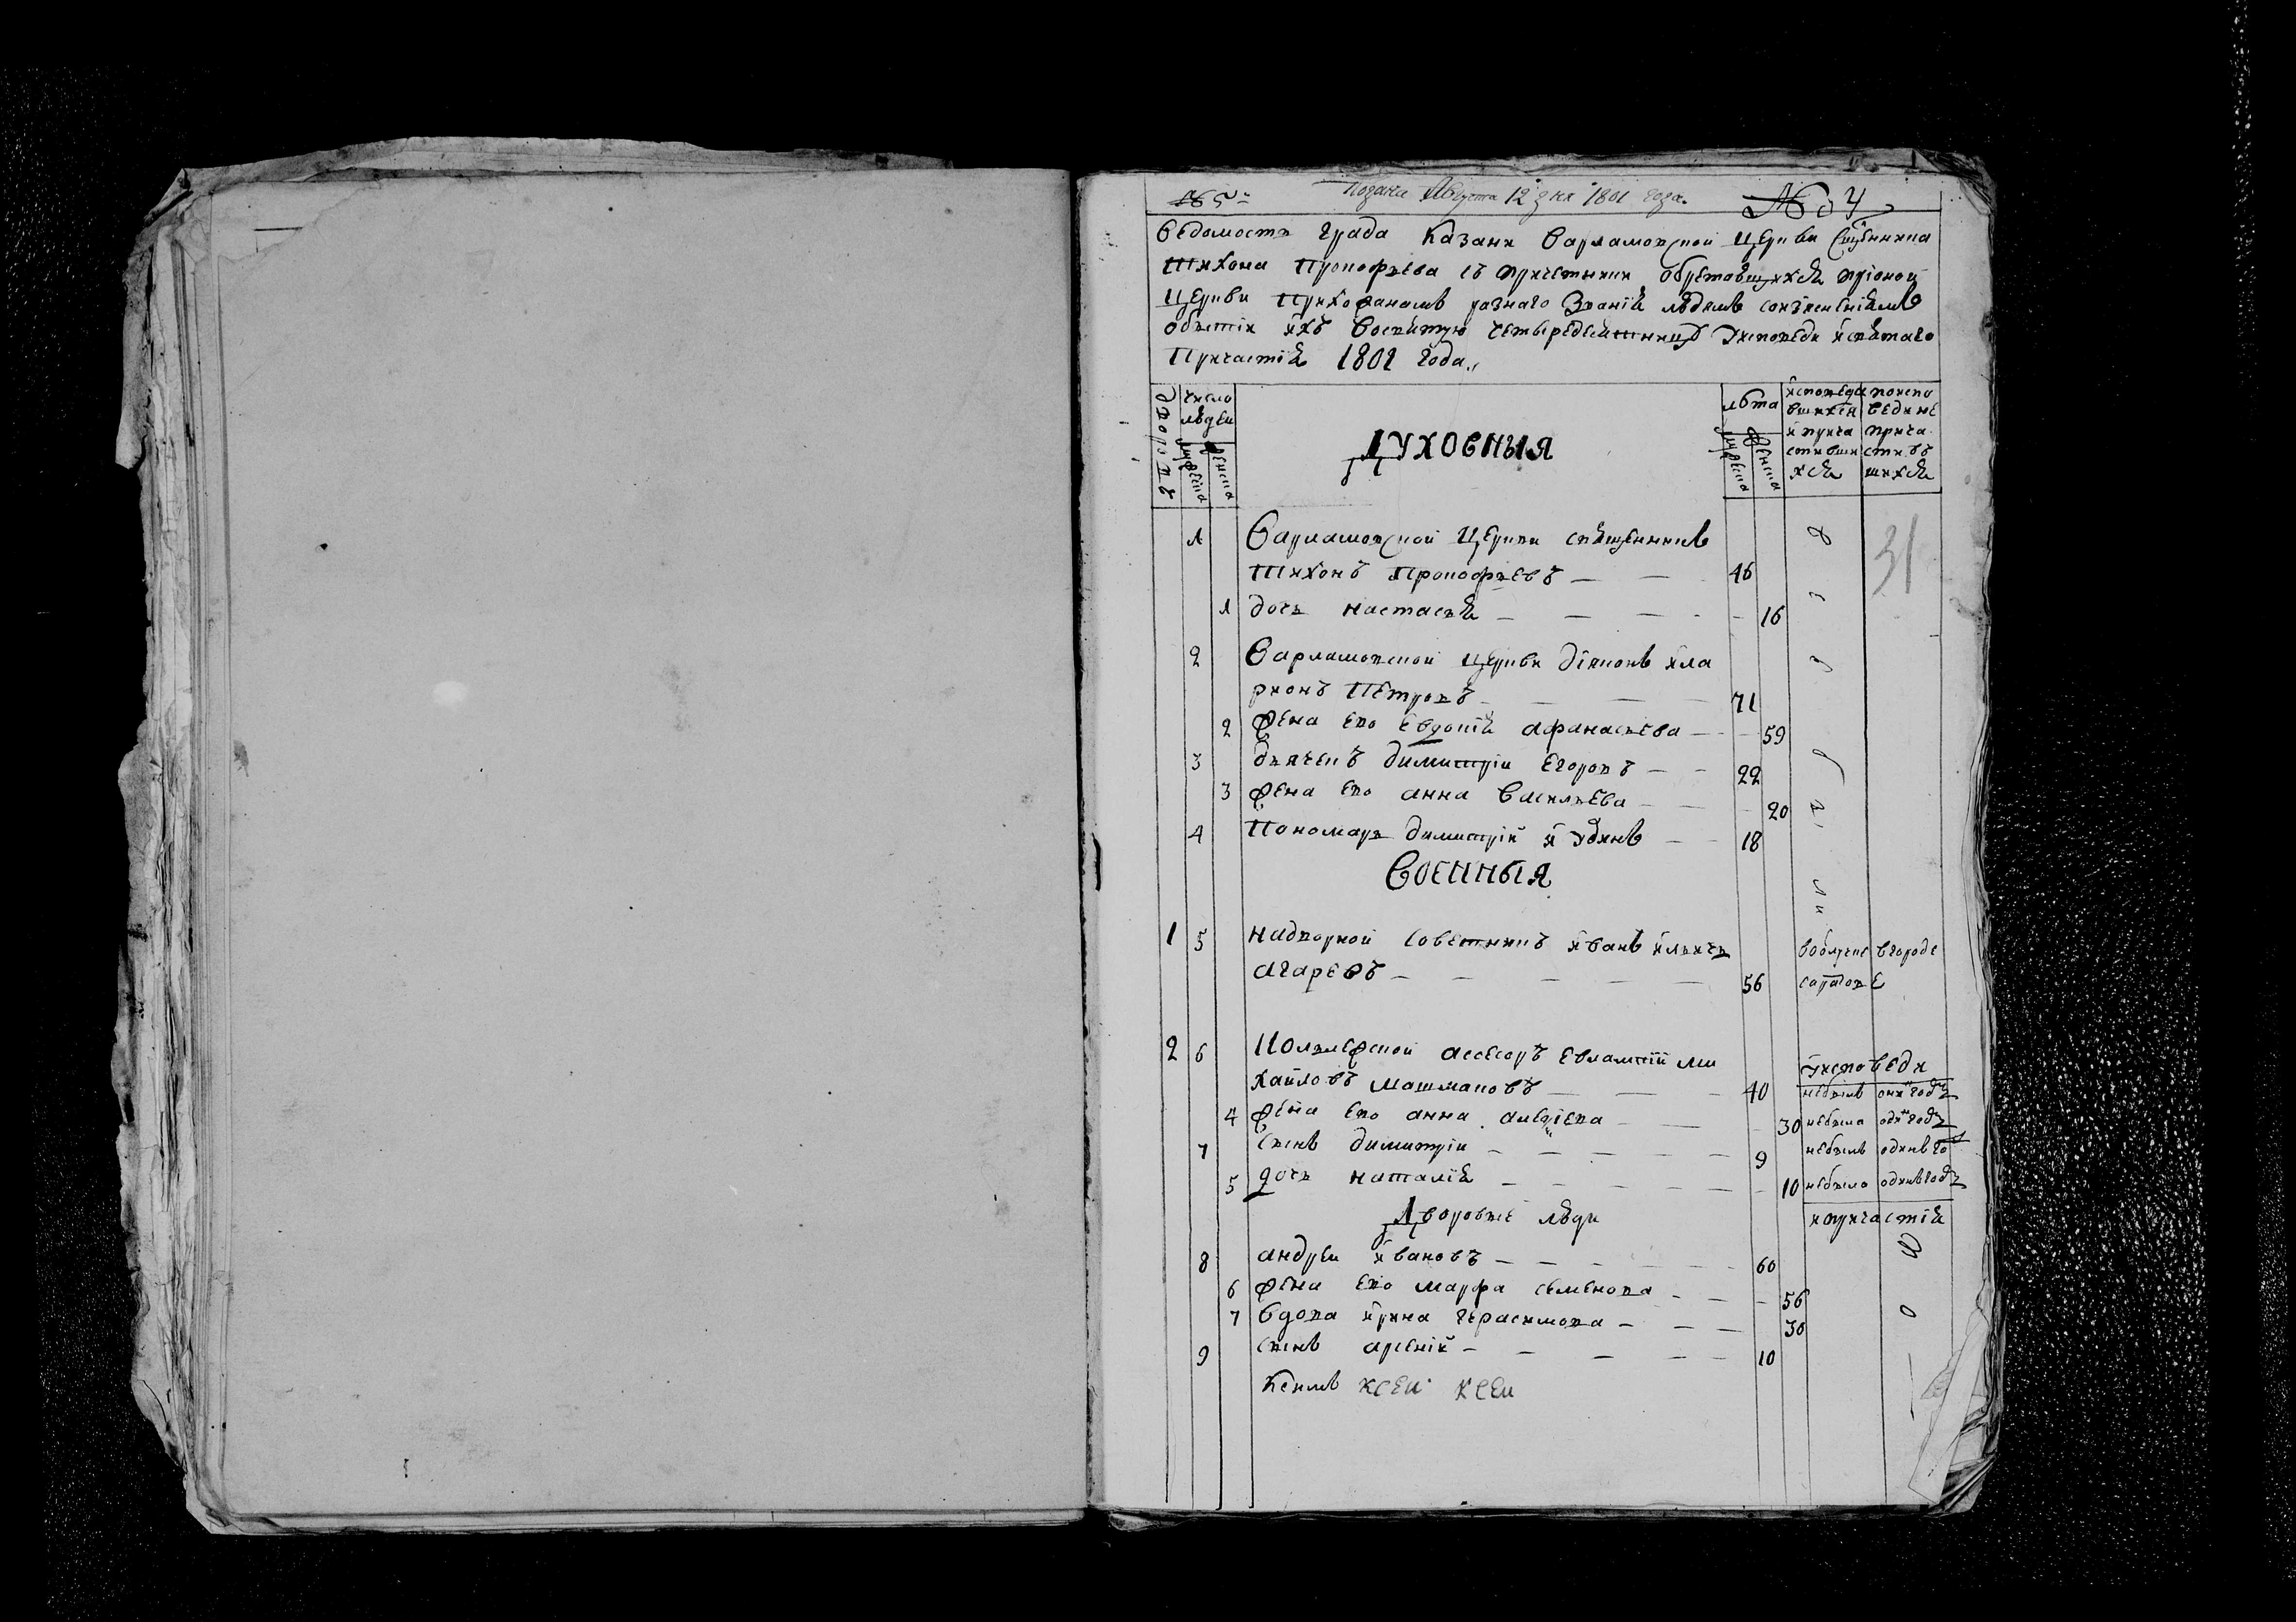 Подана Августа 12 дня 1801 года.
№ 5
№ 4
Ведомость града Казани Варламовской церкви священника
Тихона Прокофьева съ причетники обретающихся при оной
церкви приходаномъ разнаго званія людемъ
бытіи ихъ во святую четыредесятницу у исповеди и святаго
Причастія 1801 года.
дворовъ
число людеи
мужеска
женска
ДУХОВНЫЯ
лѣта
мужеска
женска
исповедавшихся и причастившихся
по исповеди не причастившихся
1 Варламовской церкви священникъ
Тихонъ Прокофьевъ 46
1 дочь настасья 16
31
2 Варламовской церкви діяконъ ила
рионъ Петровъ 71
2 жена ево Евдокія афанасьева 59
3 дьячекъ димитрій Егоровъ 22
3 жена ево анна Васильева 20
4 Пономарь димитрій 18
ВОЕННЫЯ
1 5 надворной советникъ иванъ ильичь
агаревъ 56
в городе саратове
2 6 Колежской асесоръ Евлампій ми
хаиловъ машмановъ 40
у исповеди
небылъ один год
4 жена ево анна 30 небыла один год
7 сынъ димитри 9 небылъ одинъ го
5 дочь наталія 10 небыла одинъ год
Дворовые люди
и причастія
8 андреи ивановъ 60
6 жена ево марфа семенова 56
7 вдова ирина герасимова 30
9 сынъ арсеній 10
ксеи ксеи